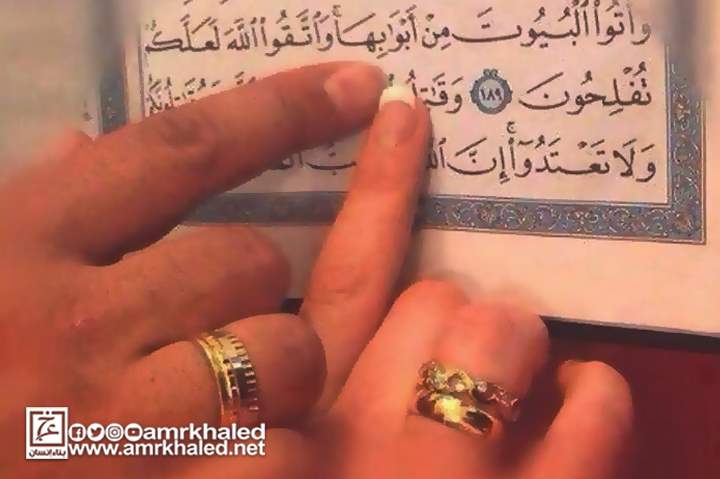 وَأْتُوا۟ ٱلْبُيُوتَ مِنْ أَبْوَٰبِهَا ۚ وَٱتَّقُوا۟ ٱللَّهَ لَعَلَّكُمْ
تُفْلِحُونَ ١٨٩
وَلَا تَعْتَدُوٓا۟ ۚ إِنَّ
بناء إنسان
amrkhaled
www.amrkhaled.net